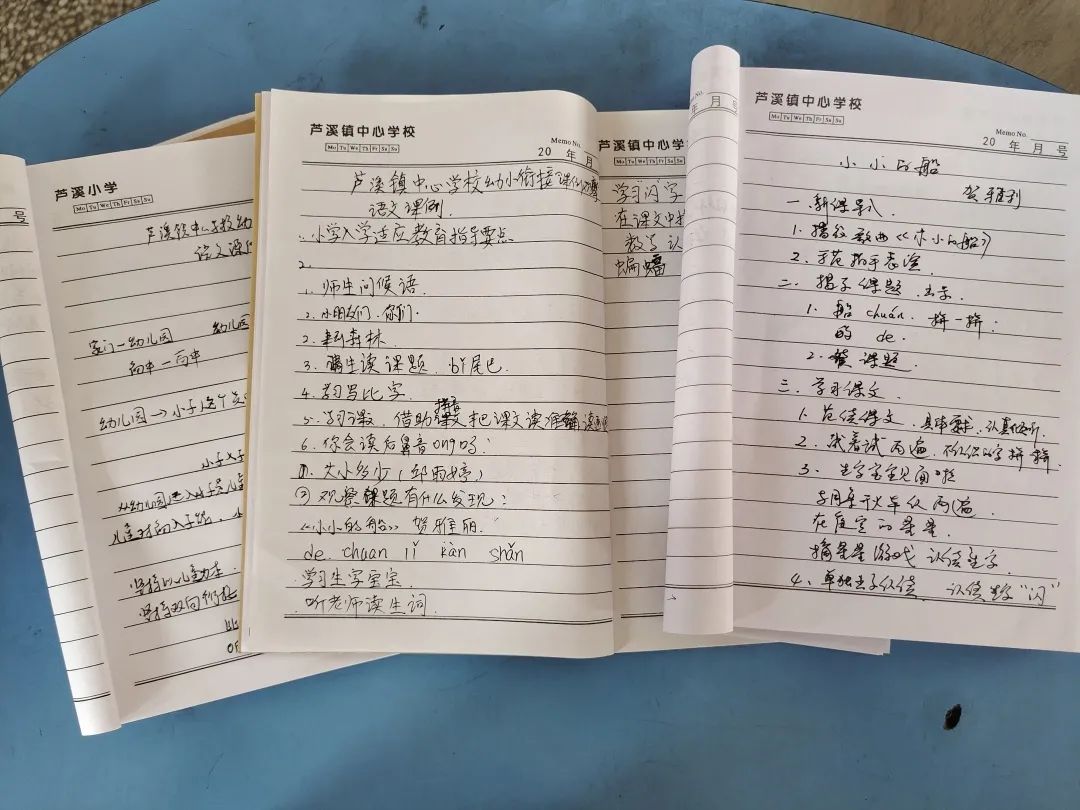 号
芦溪小学
Mo Tu We Th Fr Sa Su
芦溪镇中心学校幼
语文课例
家门一幼儿园 幼儿园
高中一高中
幼儿园→小学这个
小学
从幼儿园进入小学是儿童
坚持以儿童为本
坚持双向衔接
芦溪镇中心学校
Mo Tu We Th Fr Sa Su
Memo No.
20 年 月
芦溪镇中心学校幼小衔接课例观摩
语文课例.
1. 小学入学适应教育指导要点
2.
1. 师生问候语.
2. 小朋友们.你们.
2. 森林.
3. 生读课题. 尾巴.
4. 学习写比字.
5. 学习课文. 借助拼音把课文读准确
6. 你会读后鼻音ong吗?
①. 大小多少(邱雨婷)
② 观察课题有什么发现?
《小小的船》 贺雅丽.
de. chuan lǐ kàn shǎn
学习生字宝宝.
听老师读生词.
芦溪镇中心学
Mo Tu We Th Fr Sa Su
学习闪字
在课文中找
教学认
蝙蝠
年 月 号
芦溪镇中心学校
Mo Tu We Th Fr Sa Su
Memo No.
20 年 月 号
小小的船
贺雅利
一. 新课导入.
1. 播放歌曲《小小的船》
2. 示范拍手表演.
二. 揭示课题. 出示.
1. 船 chuán. 拼一拼:
的 de.
2. 读课题.
三. 学习课文.
1. 范读课文.
2. 试着读两遍. 不认识的字拼一拼.
3. 生字宝宝见面啦
在夜空的星星.
摘星星游戏 认读生字.
4. 单独出示认读. 认读生字“闪”